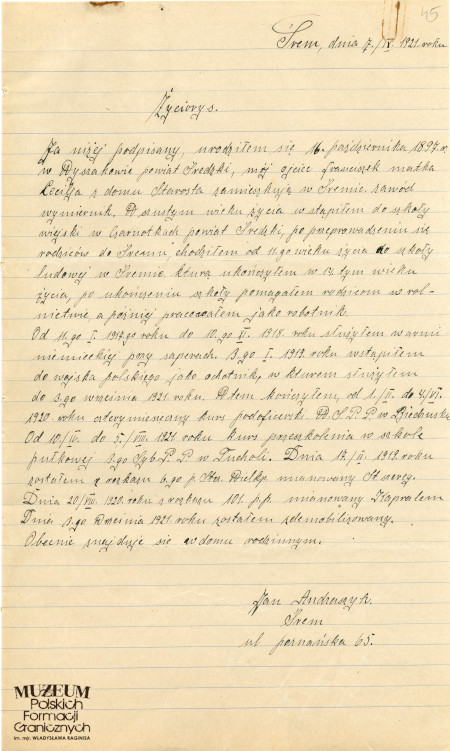 45
Śrem, dnia 7./IX. 1921. roku
Życiorys.
Ja niżej podpisany, urodziłem się 16. października 1897. r.
w powiat Średzki, mój ojciec Franciszek matka
Cecylja z domu Starosta zamieszkują w Śremie zawód
wymiernik. W szustym wieku życia wstąpiłem do szkoły
wiejski w powiat Średzki, po przeprowadzeniu się
rodziców do Śremu, chodziłem od 11.go wieku życia do szkoły
ludowej w Śremie, którą ukończyłem w 14 tym wieku
życia, po ukończeniu szkoły pomagałem rodzicom w rol-
nictwie a poźniej pracowałem jako robotnik.
Od 11.go I. 1917.go roku do 10.go VI. 1918. roku służyłem w armii
niemieckiej przy saperach. 3.go I. 1919. roku wstąpiłem
do wojska polskiego jako ochotnik, w kturem służyłem
do 3.go wrzeinia 1921. roku. W tem kończyłem, od 1./II. do 4/VI.
1920. roku czteromiesieczny kurs podoficerski W S.P.P. w Biedrusku
Od 10/IV. do 5./VIII. 1921. roku kurs przeszkolenia w szkole
pułkowej 3.go Syb. P.P. w Tucholi. Dnia 17./II. 1919. roku
zostałem z rozkazu 6.go p. Strz. Wielkp. mianowany St. szereg.
Dnia 20/VIII. 1920. roku z rozkazu 101. p.p. mianowany Kapralem
Dnia 3.go Wrzeinia 1921 roku zostałem zdemobilizowany.
Obecnie znajduje sie w domu rodzinnym.
Jan Andrzejczyk.
Śrem
ul. poznańska 65.
MUZEUM
Polskich
Formacji
Granicznych
im. mjr. WŁADYSŁAWA RAGINISA